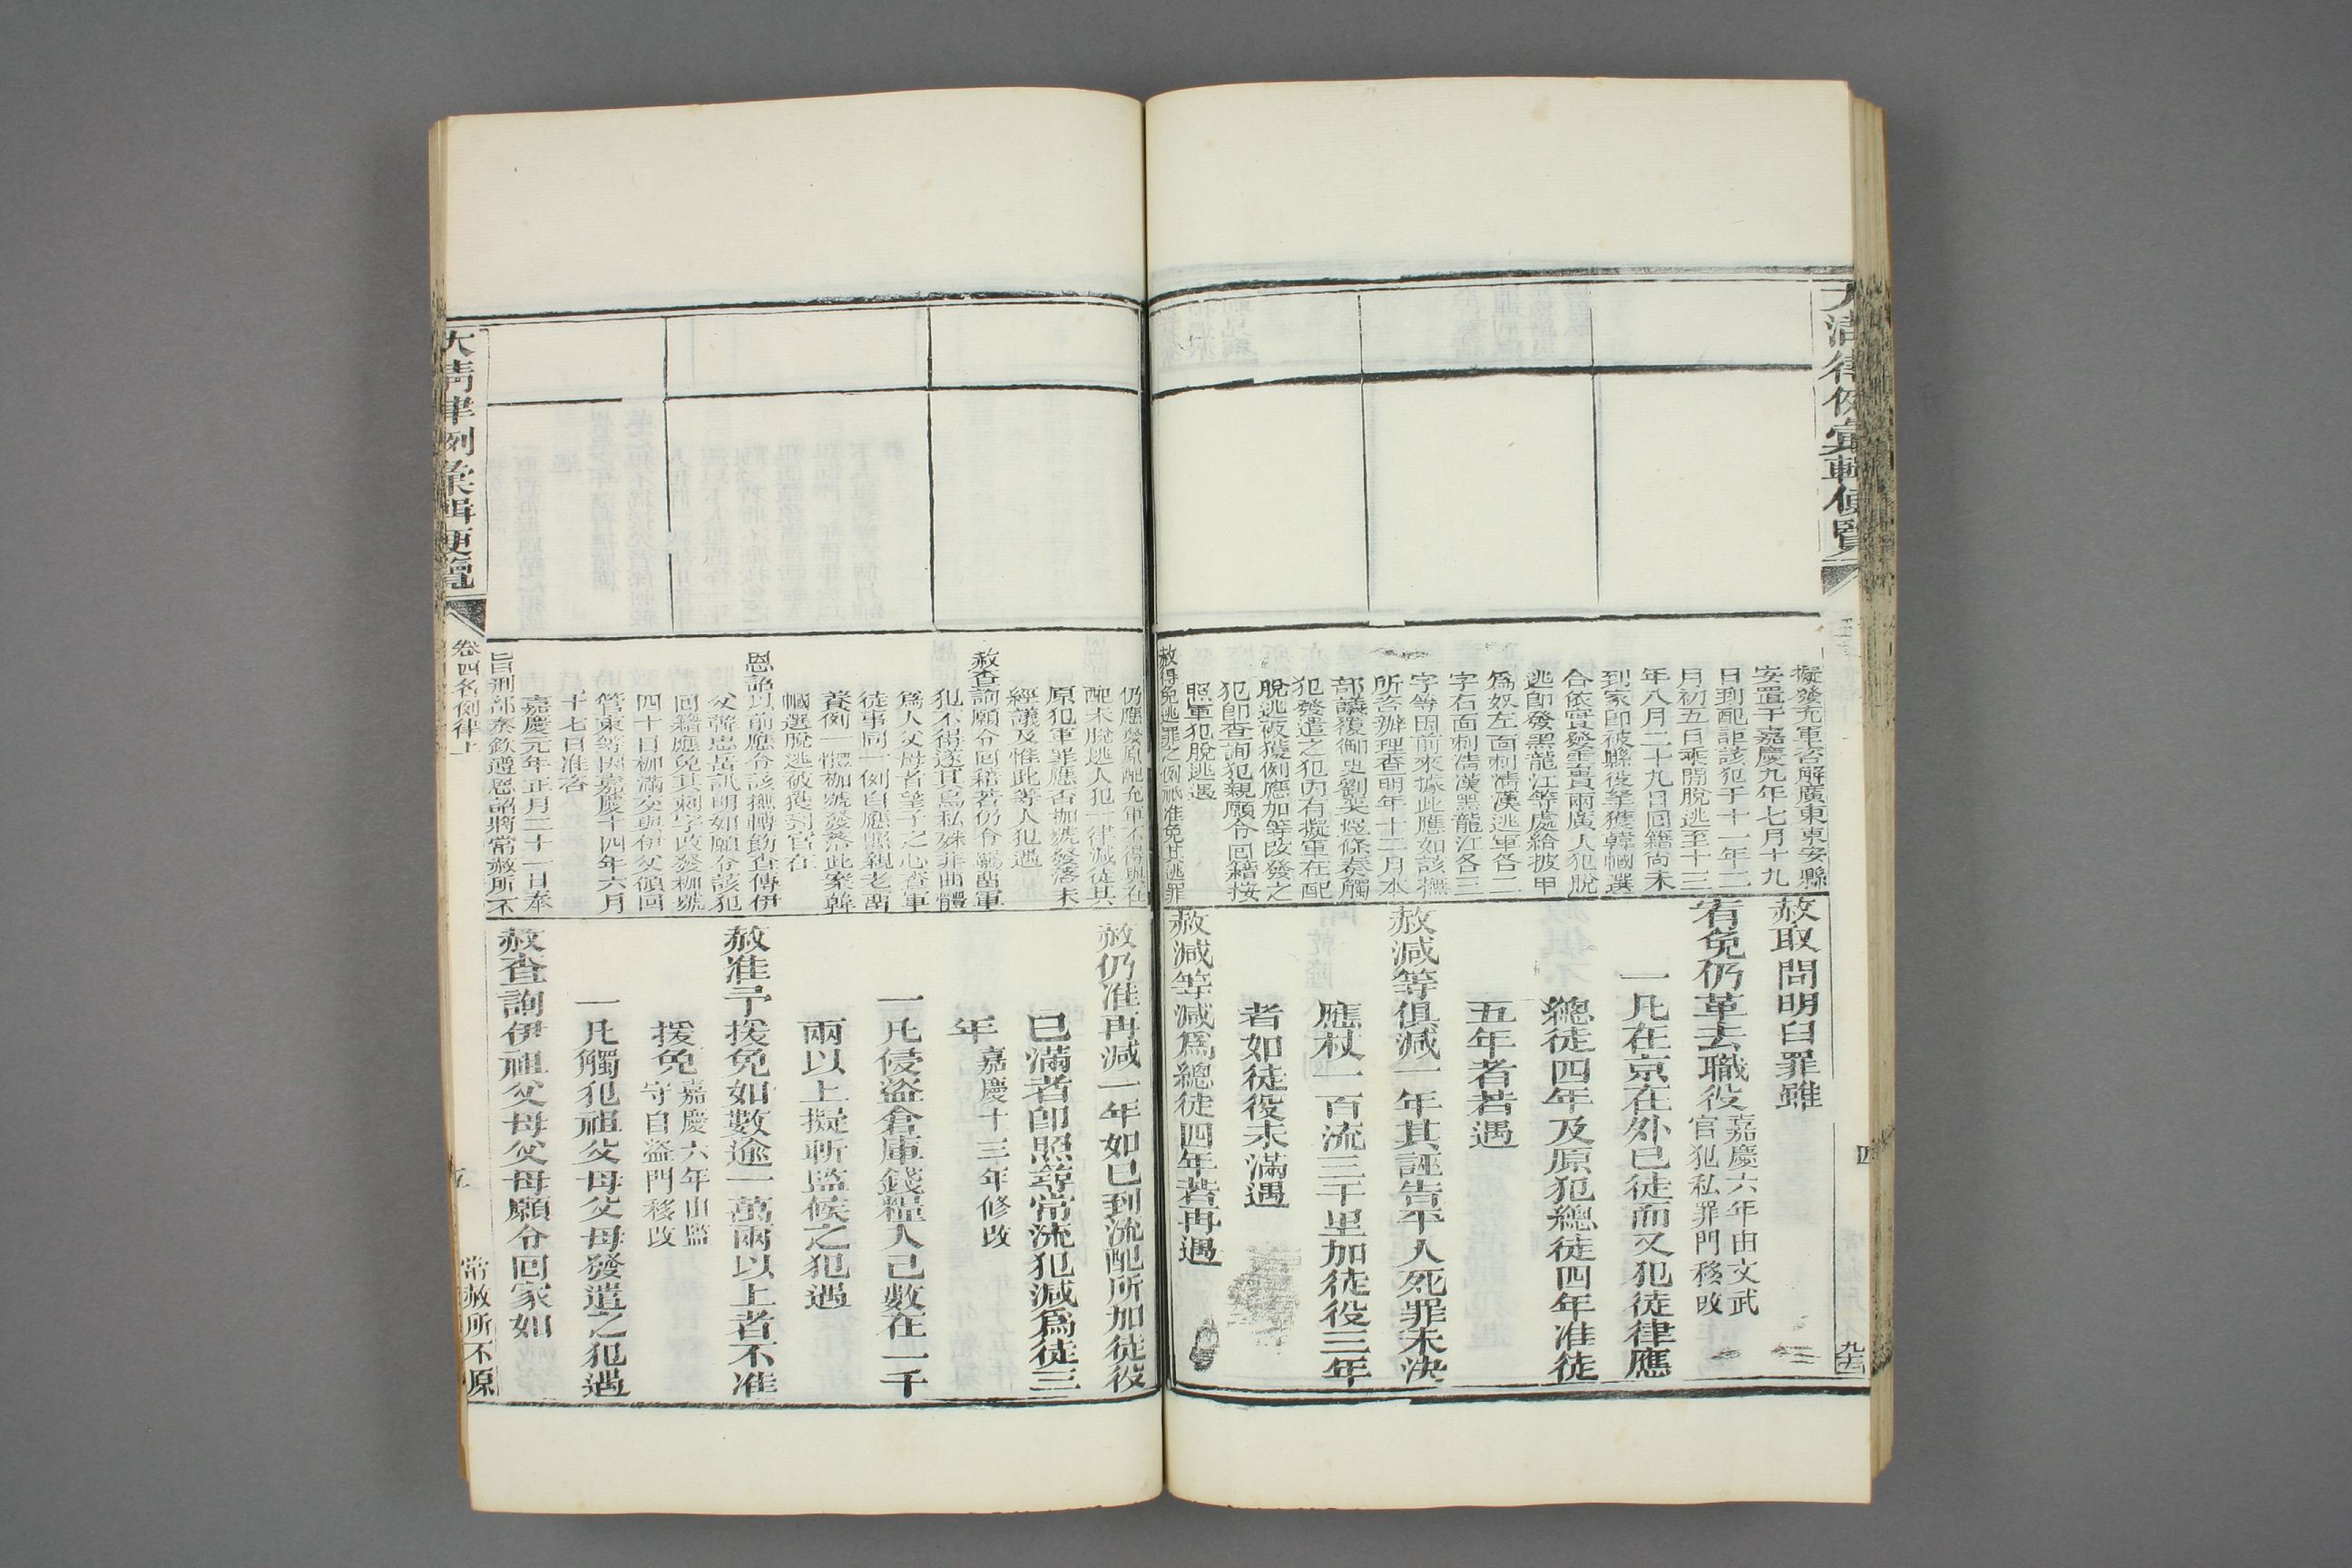 大清律例彙輯便覽
擬發充軍咨解廣東東安縣
安置于嘉慶九年七月十九
日到配詎該犯于十一年二
月初五日乘間脫逃至十三
年八月二十九日回籍尚未
到家即被縣役拏獲韓幗選
合依實發雲貴兩廣人犯脫
逃即發黑龍江等處給披甲
為奴左面刺清漢逃軍各二
字右面刺清漢黑龍江各三
字等因前來據此應如該撫
所咨辦理查明年十二月本
部議覆御史劉奕煜條奏觸
犯發遣之犯內有擬軍在配
脫逃被獲例應加等改發之
犯即查詢犯親願令回籍按
照軍犯脫逃遇
赦得免逃罪之例祇准免其逃罪
赦取問明白罪雖
宥免仍革去職役嘉慶六年由文武
官犯私罪門移改
一凡在京在外已徒而又犯徒律應
總徒四年及原犯總徒四年准徒
五年者若遇
赦減等俱減一年其誣告平人死罪未決
應杖一百流三千里加徒役三年
者如徒役未滿遇
赦減等減爲總徒四年若再遇
仍應發原配充軍不得與在
配未脫逃人犯一律減徒其
原犯軍罪應否枷號發落未
經議及惟此等人犯遇
赦查詢願令回籍若仍令羈留軍
犯不得遂其烏私殊非曲體
爲人父母者望子之心查軍
徒事同一例自應照親老留
養例一體枷號發落此案韓
幗選脫逃被獲到官在
恩詔以前應令該撫轉飭查傳伊
父韓忠岳訊明如願令該犯
回籍應免其刺字改發枷號
四十日枷滿交與伊父領回
管束等因嘉慶十四年六月
十七日准咨
嘉慶元年正月二十一日奉
旨刑部奏欽遵恩詔將常赦所不
赦仍准再減一年如已到流配所加徒役
已滿者即照尋常流犯減爲徒三
年嘉慶十三年修改
一凡侵盜倉庫錢糧入己數在一千
兩以上擬斬監候之犯遇
赦准予援免如數逾一萬兩以上者不准
援免嘉慶六年由監
守自盜門移改
一凡觸犯祖父母父母發遣之犯遇
赦查詢伊祖父母父母願令回家如
大清律例彙輯便覽
卷四名例律上
五
常赦所不原